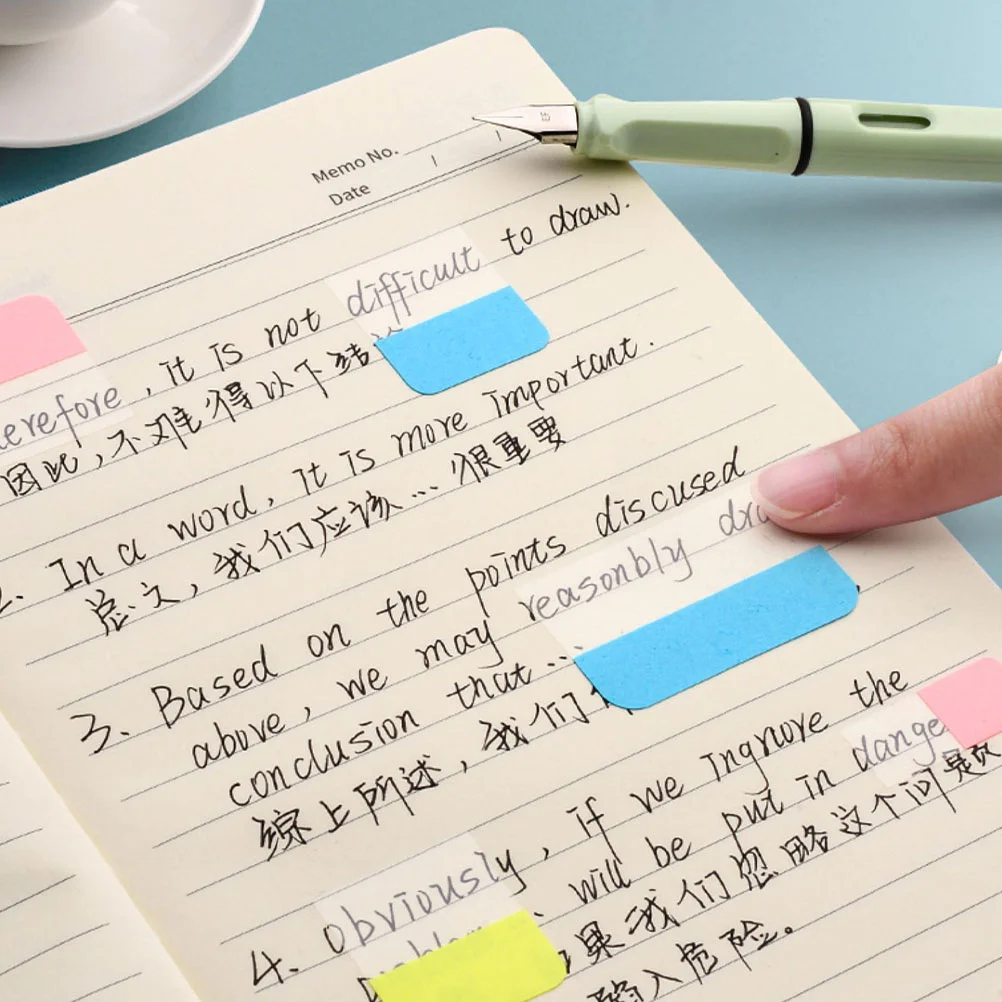 Memo No.
Date / /
erefore, it is not difficult to draw.
因此,不难得以下结
2. In a word, it is more important.
总文,我们应该…很重要
3. Based on the points discused
above, we may reasonbly
conclusion that ...
综上所述,我们
4. obviously, if we ingnore the
will be put in dange
果我们忽略这个问是页
陷入危险。